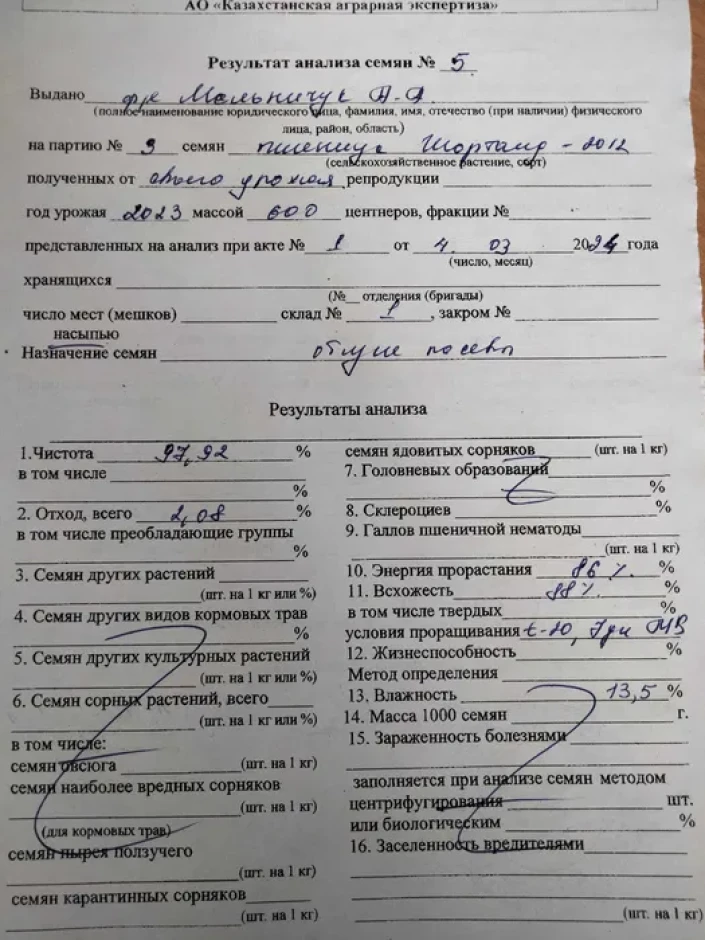 АО «Казахстанская аграрная экспертиза»
Результат анализа семян № 5
Выдано ф/х Мельничук А.А.
(полное наименование юридического лица, фамилия, имя, отчество (при наличии) физического
лица, район, область)
на партию № 3 семян пшеница Шортанд - 2012
(сельскохозяйственное растение, сорт)
полученных от своего урожая репродукции
год урожая 2023 массой 600 центнеров, фракции №
представленных на анализ при акте № 1 от 4. 03 2024 года
(число, месяц)
хранящихся
(№ отделения (бригады)
число мест (мешков) склад № 1, закром №
насыпью
Назначение семян общие посевы
Результаты анализа
1.Чистота 97,92 %
в том числе
%
2. Отход, всего 2,08 %
в том числе преобладающие группы
%
3. Семян других растений
(шт. на 1 кг или %)
4. Семян других видов кормовых трав
%
5. Семян других культурных растений
(шт. на 1 кг или %)
6. Семян сорных растений, всего
(шт. на 1 кг или %)
в том числе:
семян овсюга (шт. на 1 кг)
семян наиболее вредных сорняков
(шт. на 1 кг)
(для кормовых трав)
семян пырея ползучего
(шт. на 1 кг)
семян карантинных сорняков
(шт. на 1 кг)
семян ядовитых сорняков (шт. на 1 кг)
7. Головневых образований
%
8. Склероциев %
9. Галлов пшеничной нематоды
(шт. на 1 кг)
10. Энергия прорастания 86 % %
11. Всхожесть 88 % %
в том числе твердых
условия проращивания t-20, 7дн
12. Жизнеспособность %
Метод определения
13. Влажность 13,5 %
14. Масса 1000 семян г.
15. Зараженность болезнями
заполняется при анализе семян методом
центрифугирования шт.
или биологическим %
16. Заселенность вредителями
(шт. на 1 кг)